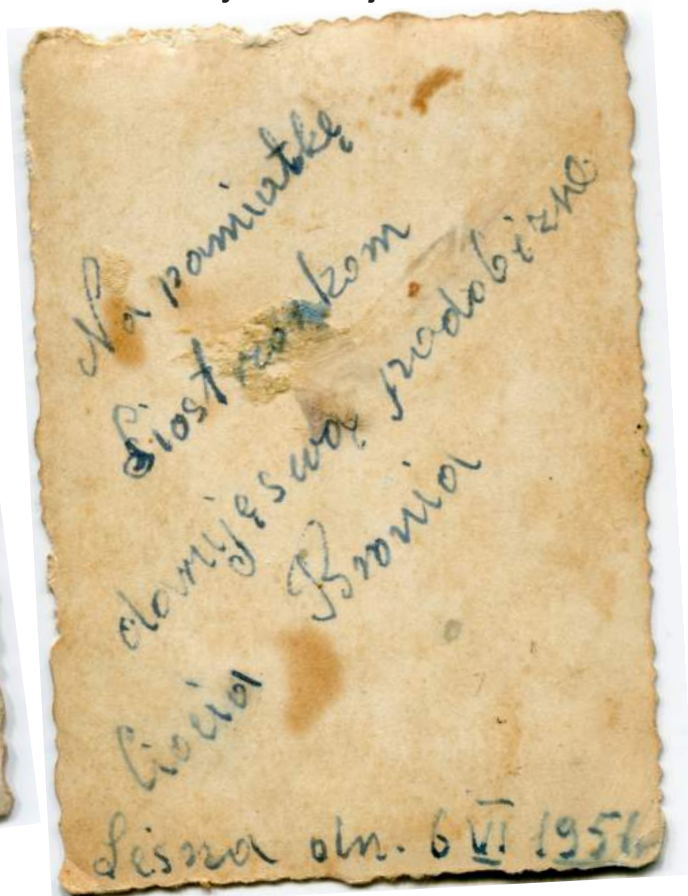 Na pamiatkę
Siostrzonkom
daruję swą podobiznę
Ciocia Bronia
Leśna dn. 6 VI 195